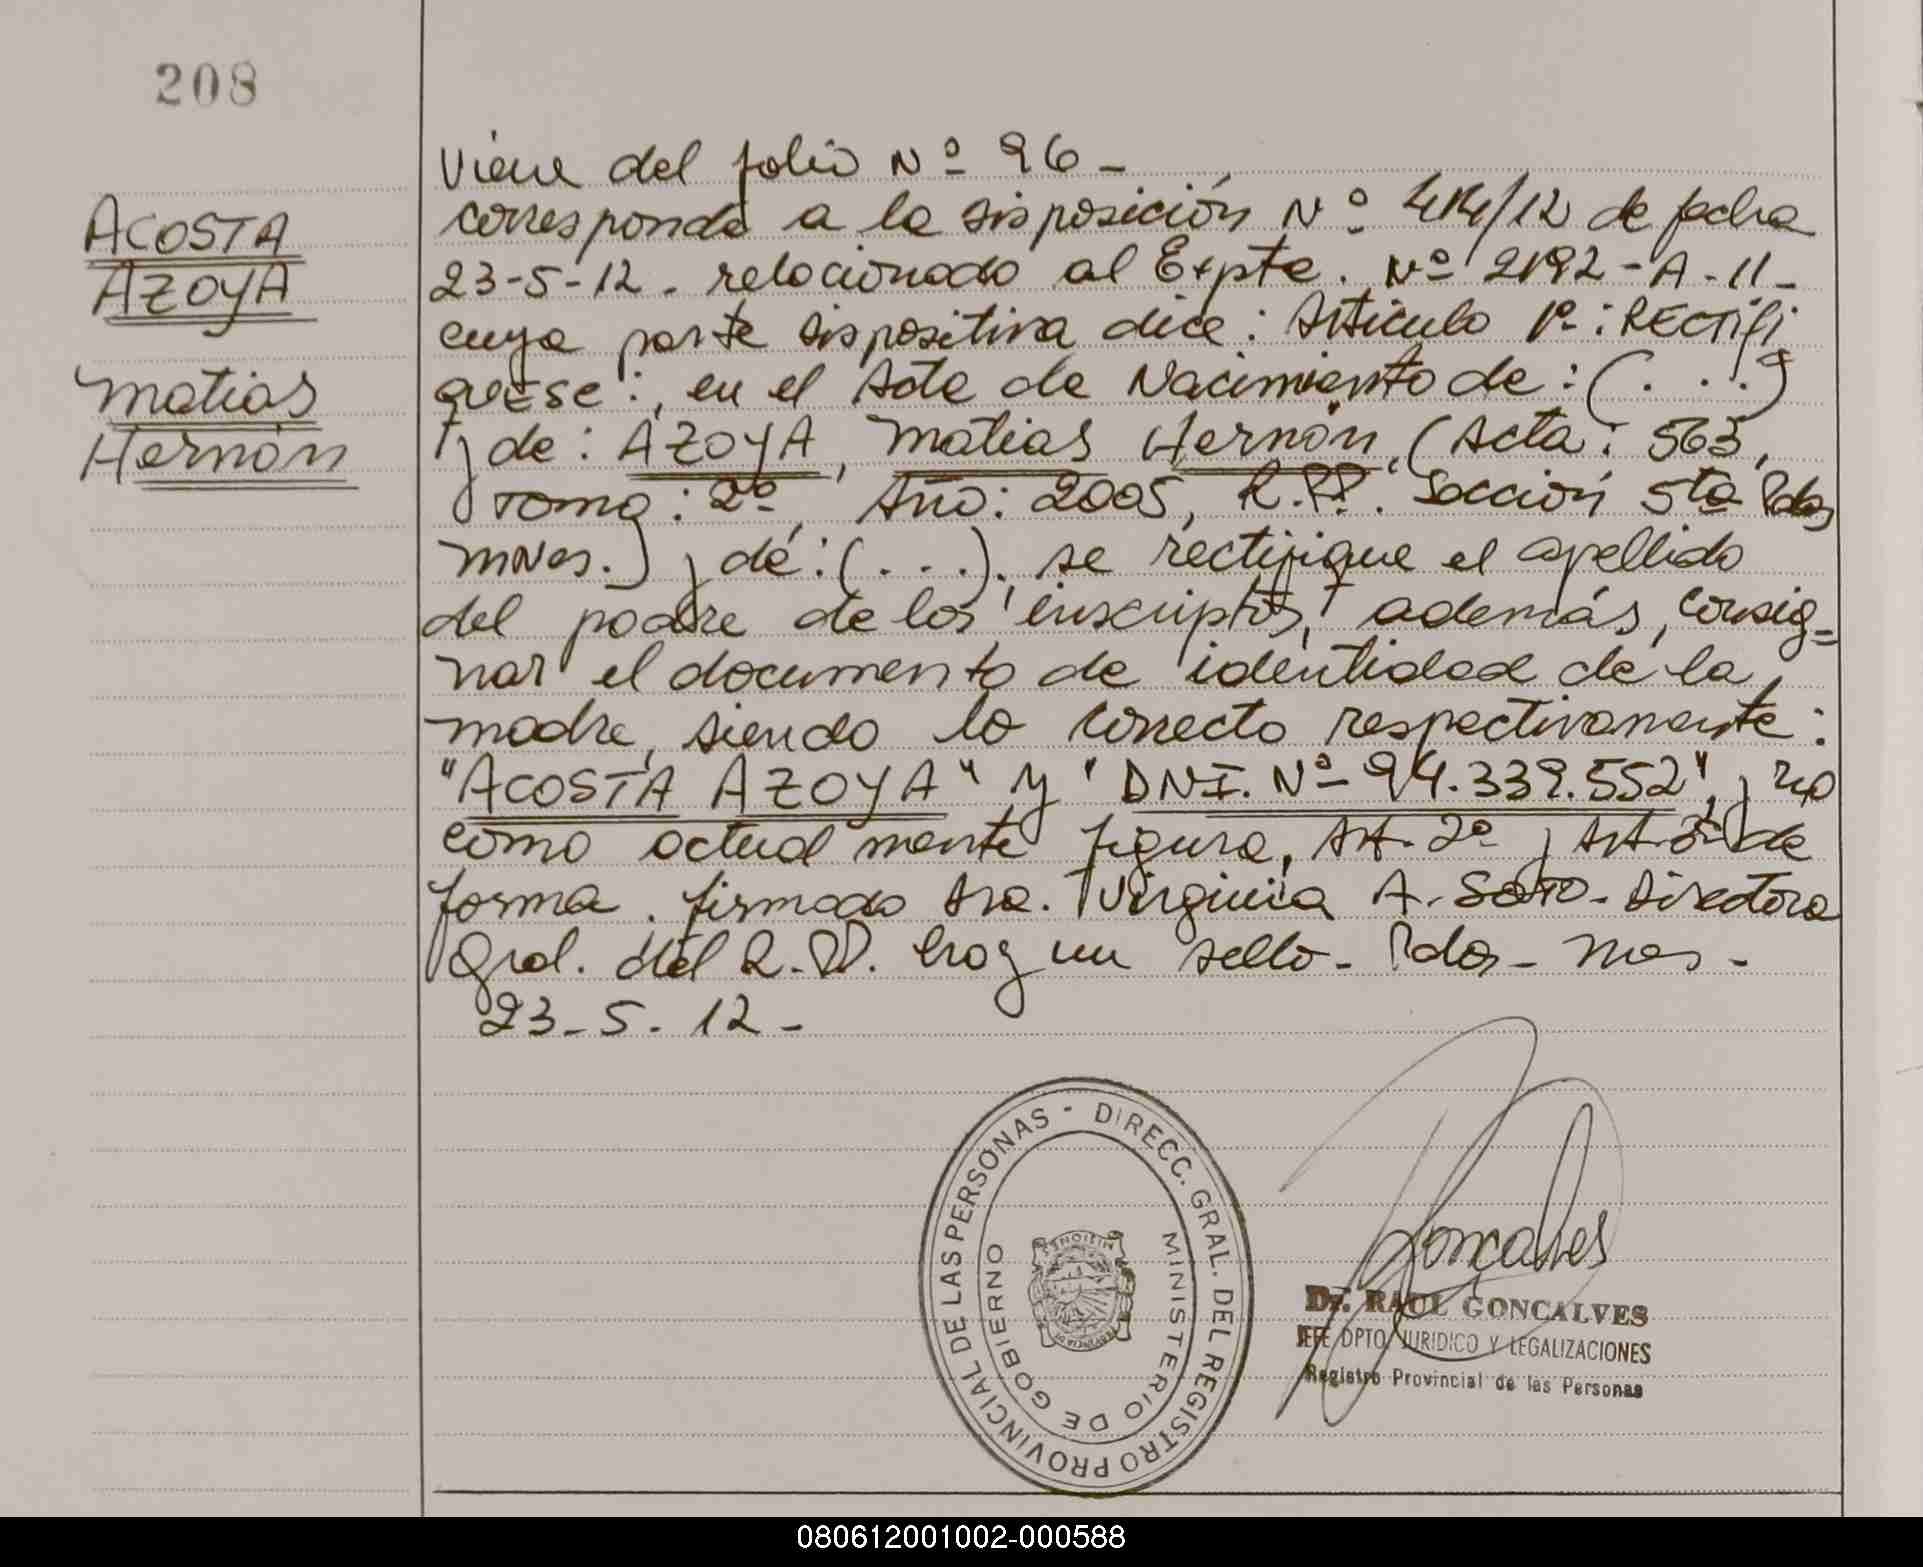 208
ACOSTA
AZOYA
Matias
Hernán
Viene del folio Nº 96 -
corresponde a la disposición Nº 414/12 de fecha
23-5-12. relacionado al Expte. Nº 2192-A-11-
cuya parte dispositiva dice: Artículo 1º: RECTIFI
QUESE:, en el Acta de Nacimiento de: (...)
y de: AZOYA, Matias Hernán, (Acta: 563,
Tomo: 2º, Año: 2005, R.P.P. Sección 5ta Pdas
Mnes.) y de: (...), se rectifique el apellido
del padre de los inscriptos, y además, consig=
nar el documento de identidad de la
madre, siendo lo correcto respectivamente:
"ACOSTA AZOYA" y "DNI. Nº 94.339.552", y no
como actualmente figura, Art. 2º y Art. 3º de
forma. firmado Sra. Virginia A. Soto - Directora
Gral. del R.PP. hay un sello - Pdas - Mnes -
23-5-12-
DIRECC. GRAL. DEL REGISTRO PROVINCIAL DE LAS PERSONAS -
MINISTERIO DE GOBIERNO
MISIONES
Goncalves
Dr. RAUL GONCALVES
JEFE DPTO. JURIDICO Y LEGALIZACIONES
Registro Provincial de las Personas
080612001002-000588